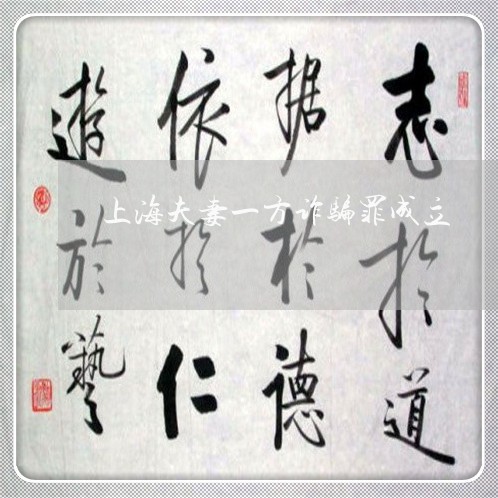 志於道
据於德
依於仁
遊於藝
上海夫妻一方诈骗罪成立